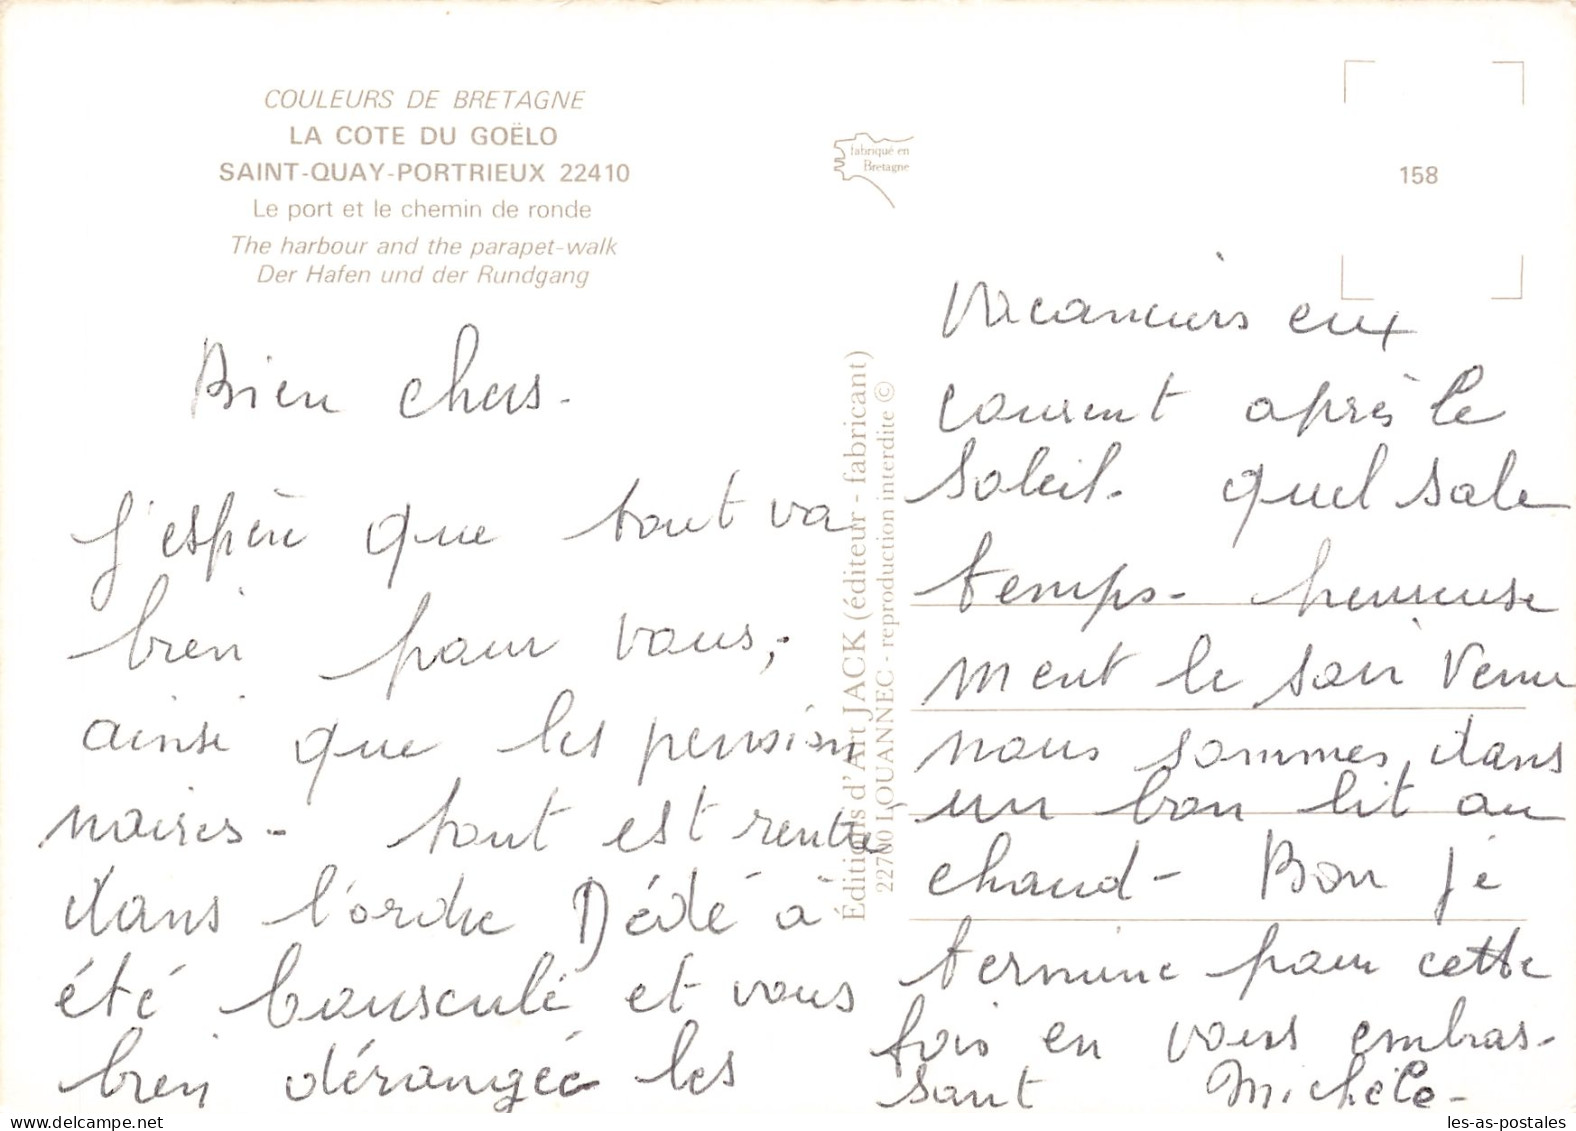 COULEURS DE BRETAGNE
LA COTE DU GOËLO
SAINT-QUAY-PORTRIEUX 22410
Le port et le chemin de ronde
The harbour and the parapet-walk
Der Hafen und der Rundgang
fabriqué en
Bretagne
158
Éditions d'Art JACK (éditeur - fabricant)
22700 LOUANNEC - reproduction interdite ©
Bien chers -
J'espère que tout va
bien pour vous, -
ainsi que les pension
naires - tout est rentré
dans l'ordre Dédé à
été bousculé et vous
bien dérangée les
vacanciers eux
courent après le
soleil - quel sale
temps - heureuse
ment le soir venu
nous sommes dans
un bon lit au
chaud - Bon je
termine pour cette
fois en vous embras-
sant Michèle -
les-as-postales